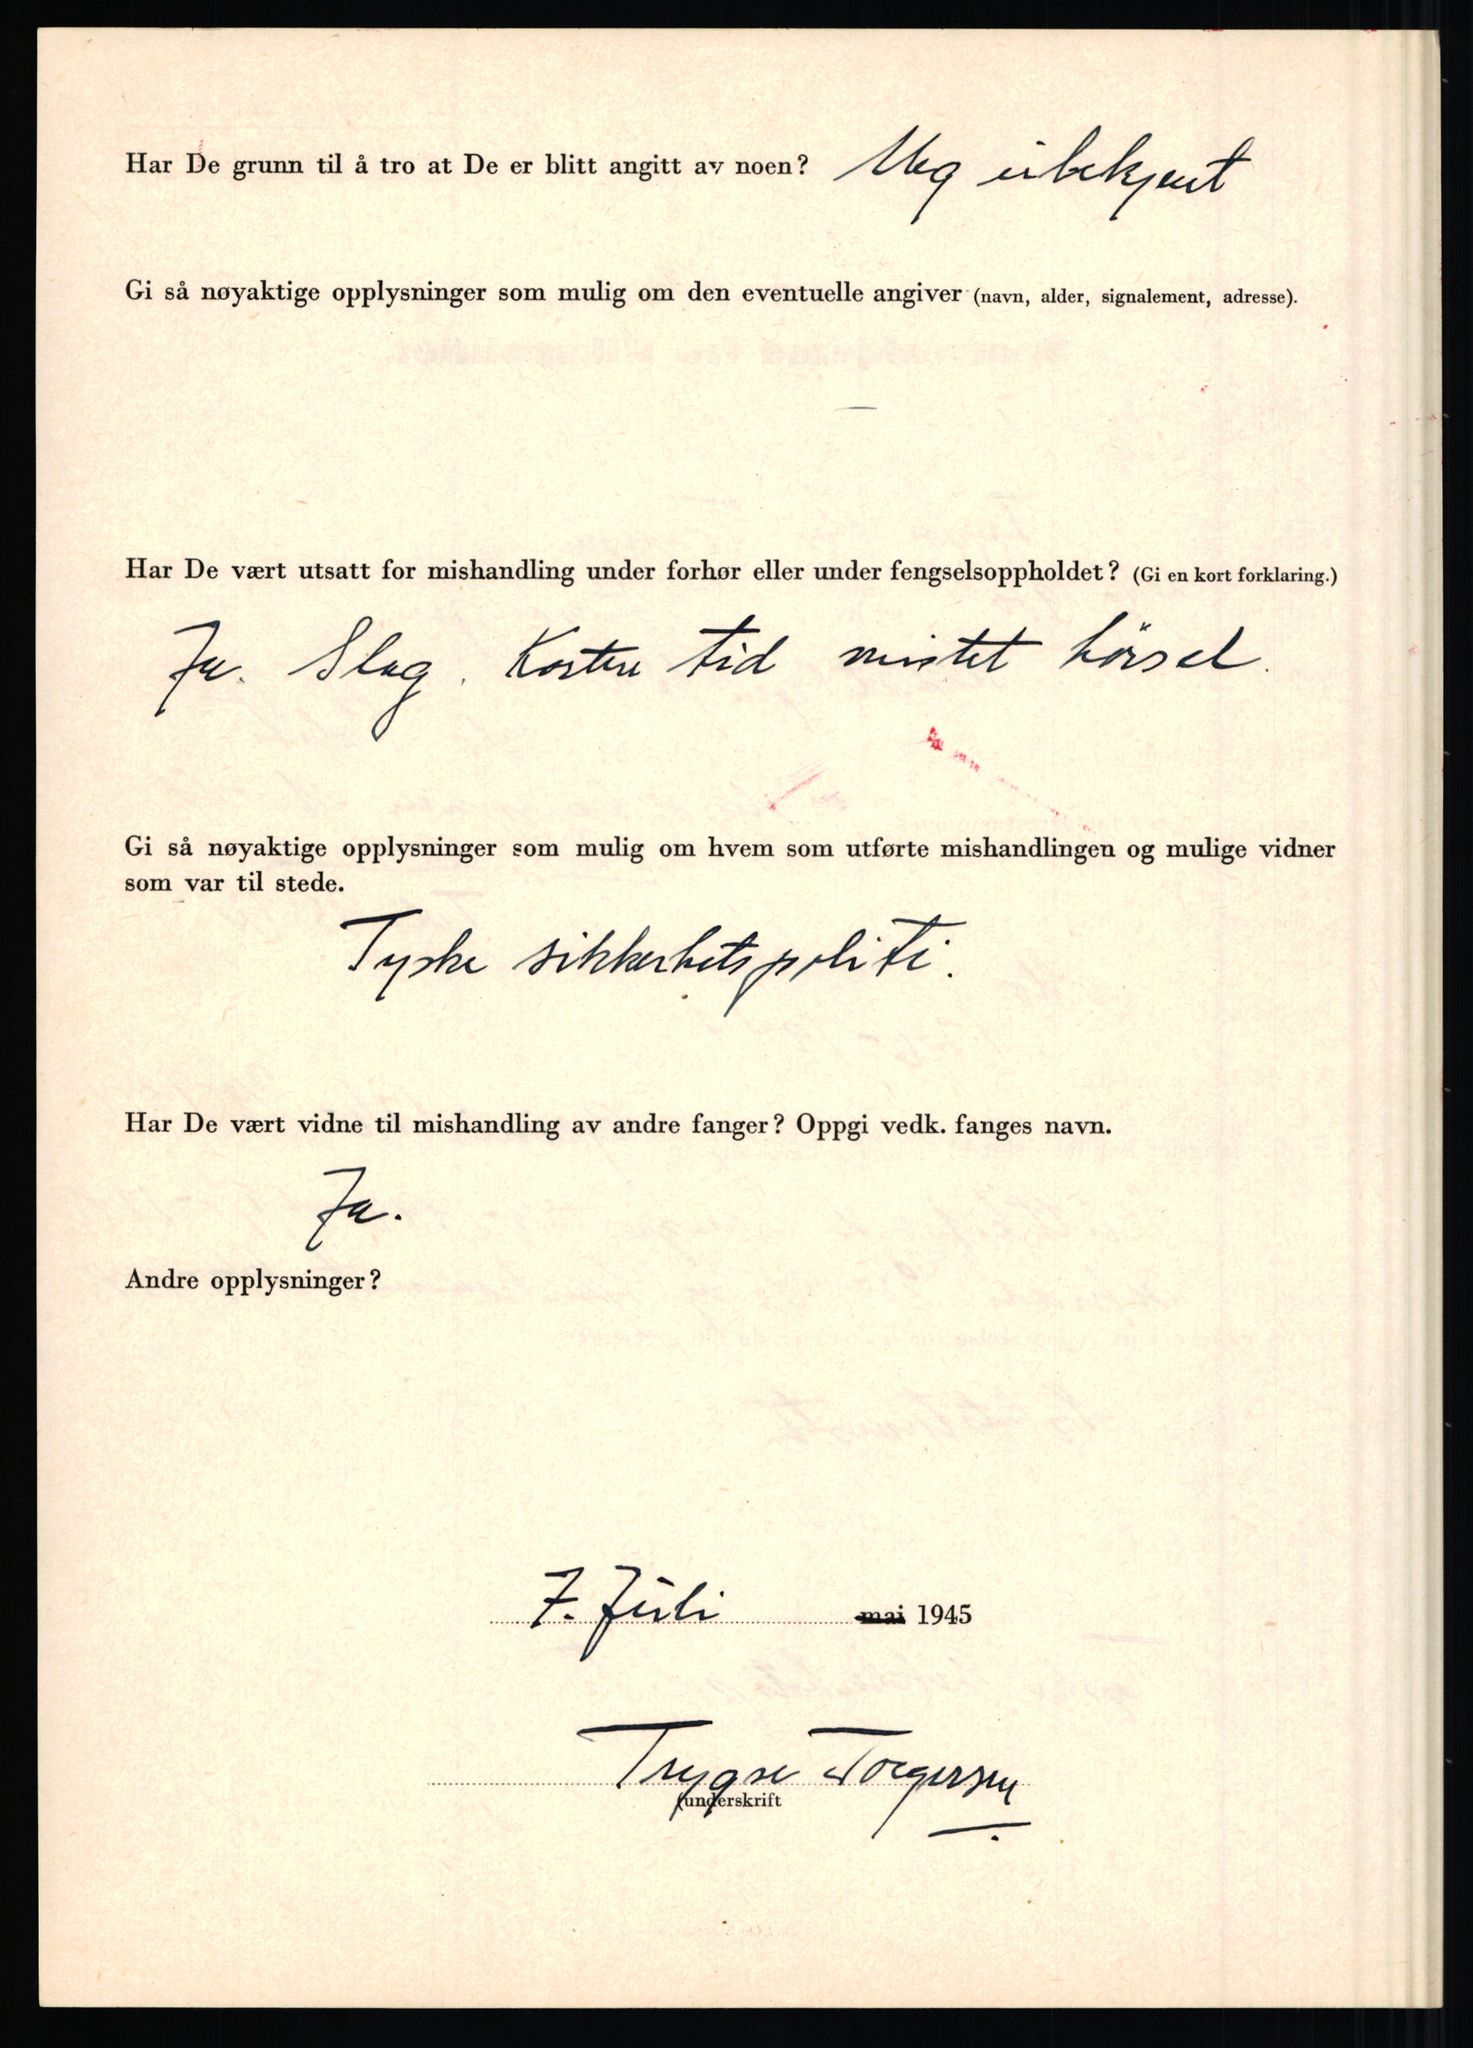 Har De grunn til å tro at De er blitt angitt av noen? Meg ubekjent
Gi så nøyaktige opplysninger som mulig om den eventuelle angiver (navn, alder, signalement, adresse).
—
Har De vært utsatt for mishandling under forhør eller under fengselsoppholdet? (Gi en kort forklaring.)
Ja. Slag. Kortere tid mistet hørsel.
Gi så nøyaktige opplysninger som mulig om hvem som utførte mishandlingen og mulige vidner
som var til stede.
Tyske sikkerhetspoliti.
Har De vært vidne til mishandling av andre fanger? Oppgi vedk. fanges navn.
Ja.
Andre opplysninger?
7. Juli mai 1945
Trygve Torgersen
(underskrift